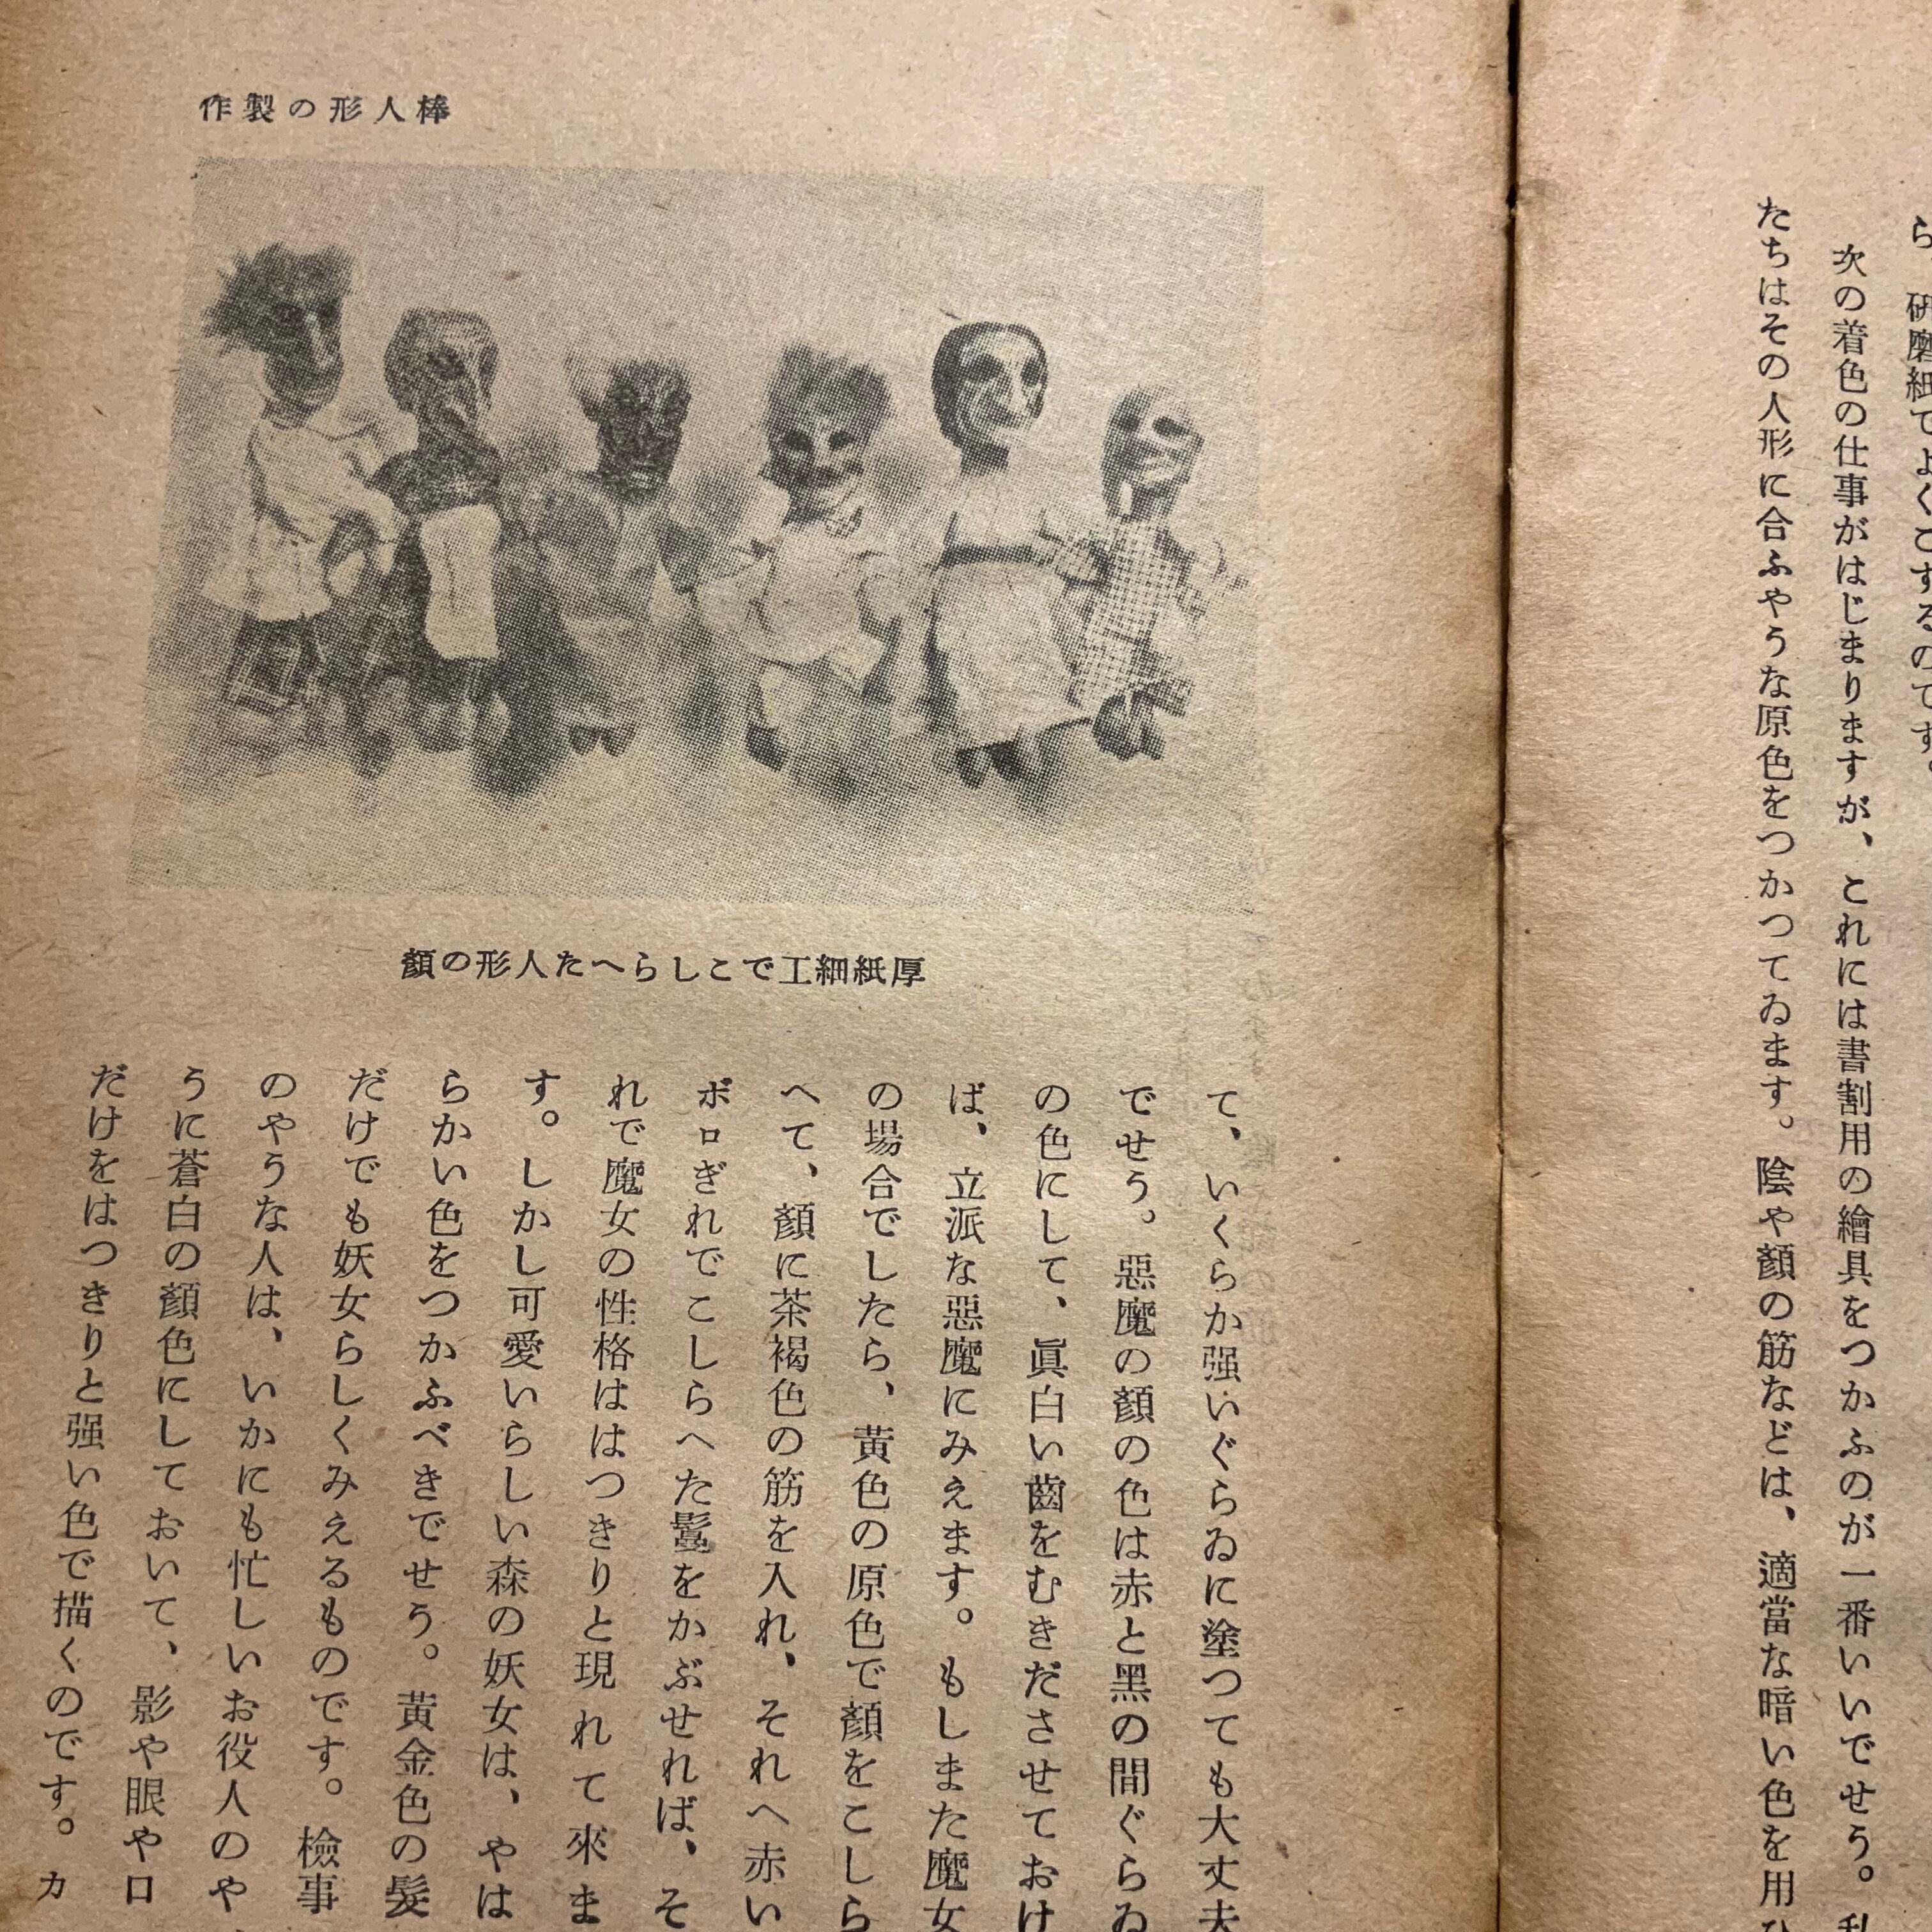 研磨紙でよくこするのです。
次の着色の仕事がはじまりますが、これには書割用の繪具をつかふのが一番いいでせう。私
たちはその人形に合ふやうな原色をつかつてゐます。陰や顏の筋などは、適當な暗い色を用ひ
作製の形人棒
顏の形人たへらしこで工細紙厚
て、いくらか强いぐらゐに塗つても大丈夫
でせう。惡魔の顏の色は赤と黑の間ぐらゐ
の色にして、眞白い齒をむきださせておけ
ば、立派な惡魔にみえます。もしまた魔女
の場合でしたら、黃色の原色で顏をこしら
へて、顏に茶褐色の筋を入れ、それへ赤い
ボロぎれでこしらへた鬘をかぶせれば、そ
れで魔女の性格ははつきりと現れて來ま
す。しかし可愛いらしい森の妖女は、やは
らかい色をつかふべきでせう。黃金色の髮
だけでも妖女らしくみえるものです。檢事
のやうな人は、いかにも忙しいお役人のや
うに蒼白の顏色にしておいて、影や眼や口
だけをはつきりと强い色で描くのです。カ